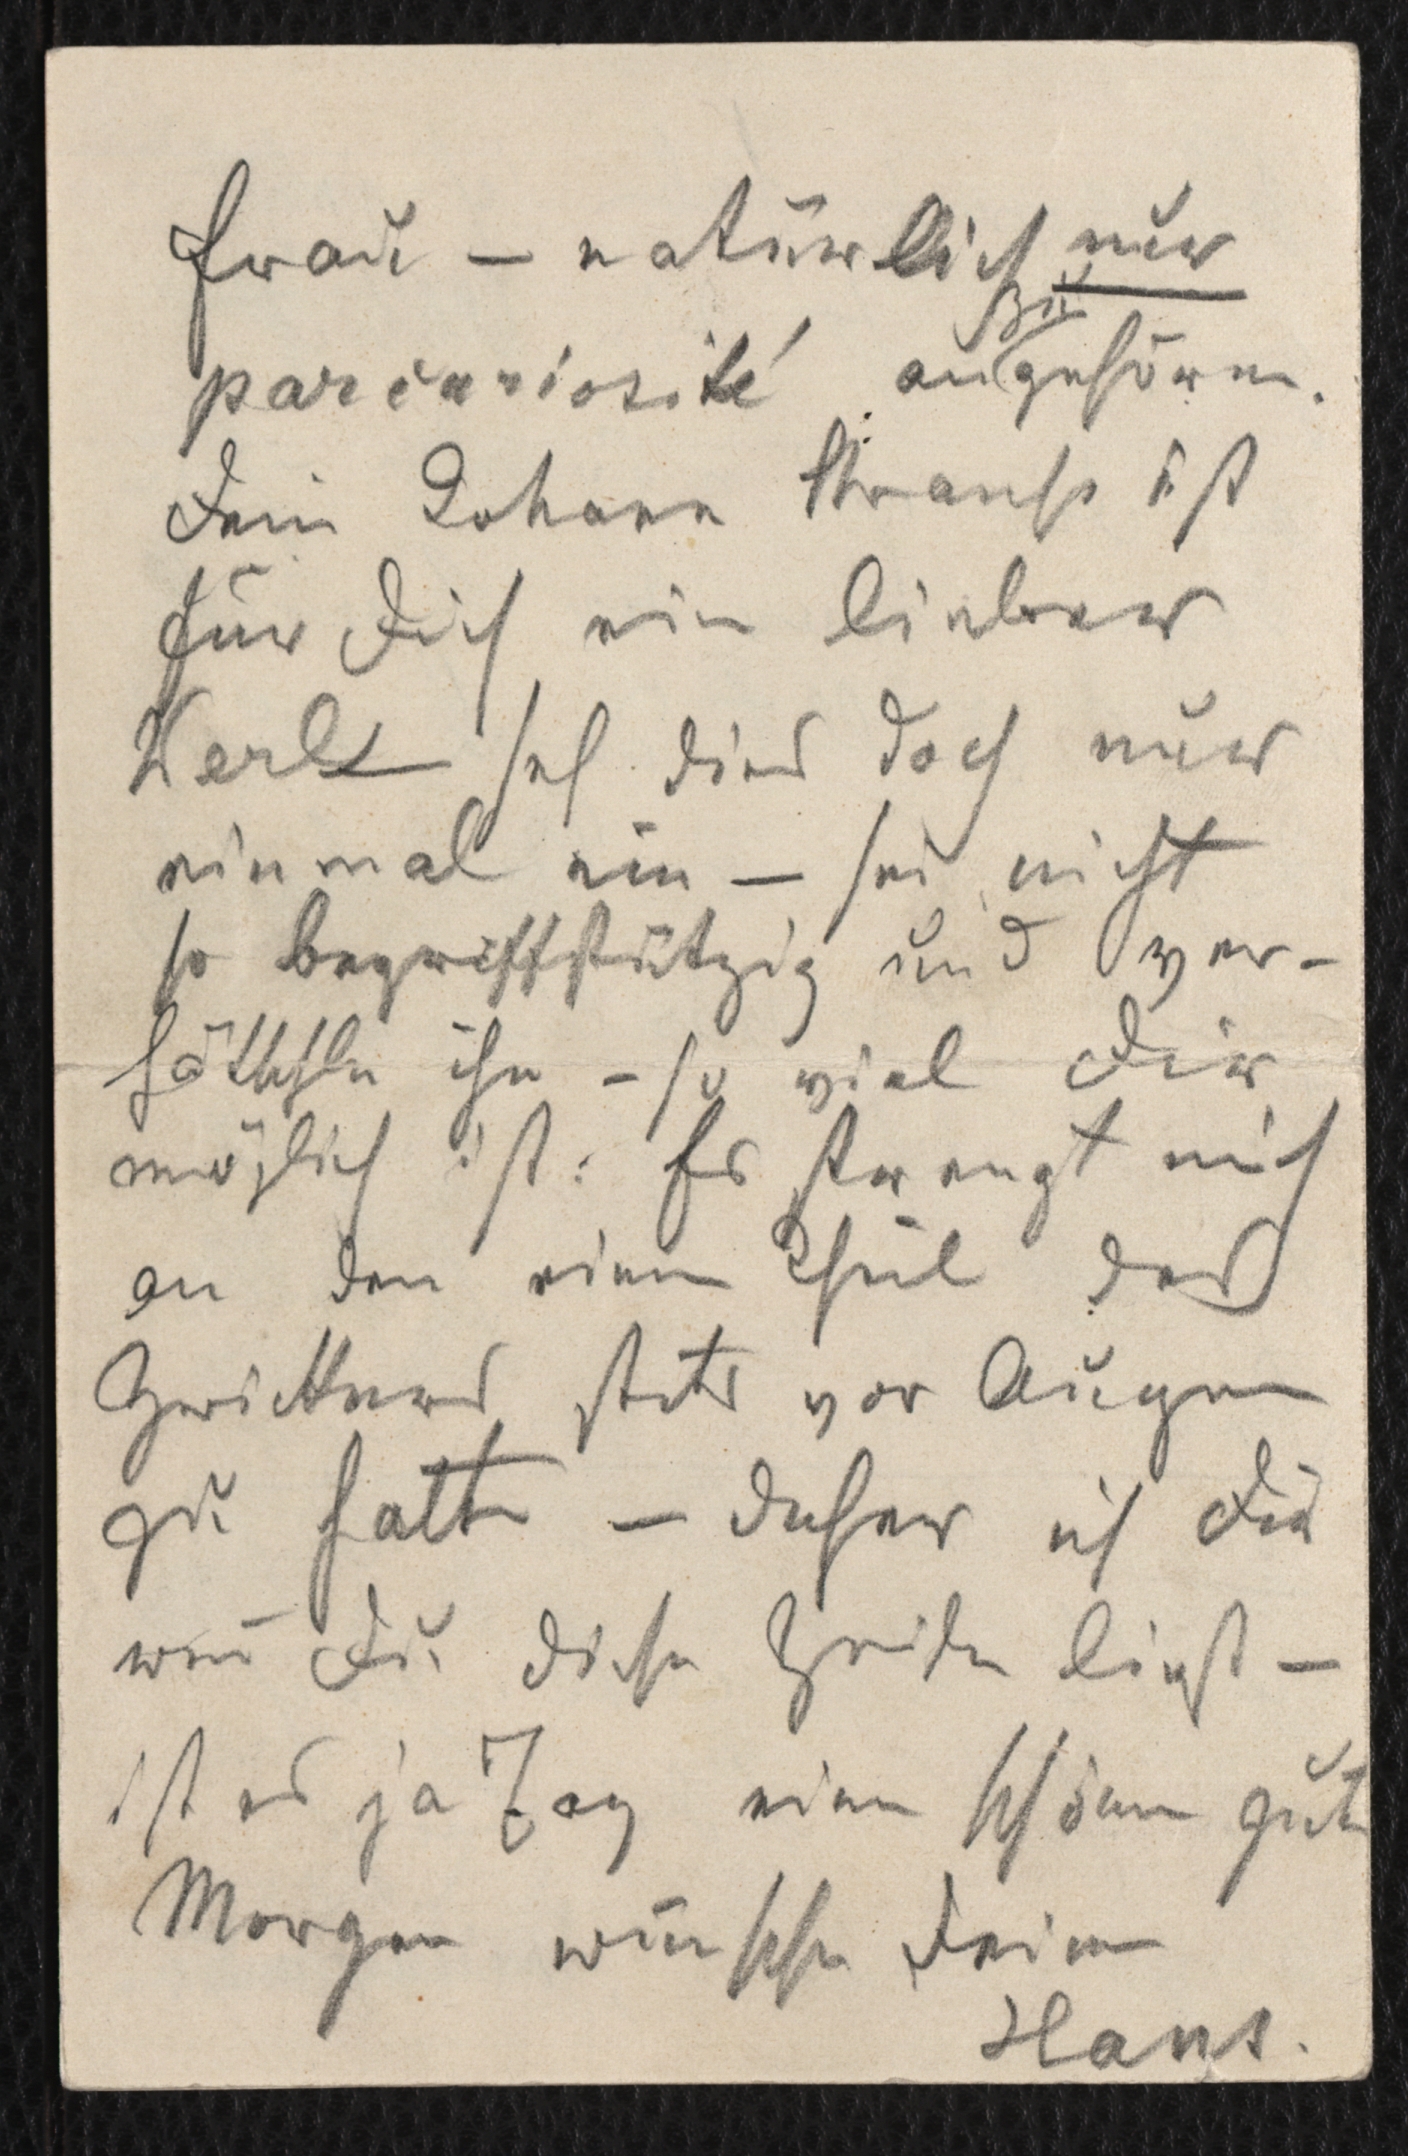 Frau – natürlich nur
par curiosité anzugehören.
Dein Johann Strauß ist
für Dich ein lieber
Kerl – seh dies doch nur
einmal ein – sei nicht
so begriffstützig und ver-
hätschle ihn – so viel Dir
möglich ist. Es strengt mich
an den einen Theil des
Zwickers stets vor Augen
zu halten – daher ich Dir
weñ Du diese Zeilen liest –
ist es ja Tag einen schönen guten
Morgen wünsche Deinen
Hans.